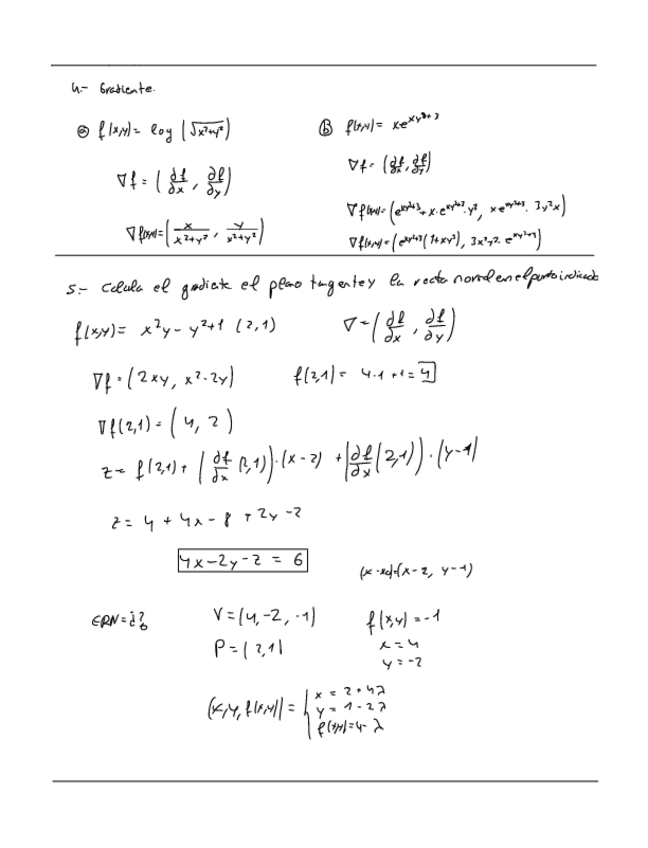 4.- Gradiente.
ⓐ f(x,y) = log (√x²+y²)
∇f = (∂f/∂x, ∂f/∂y)
∇f(x,y) = (x/x²+y², y/x²+y²)
ⓑ f(x,y) = xe^xy³+3
∇f = (∂f/∂x, ∂f/∂y)
∇f(x,y) = (e^xy³+3 + x·e^xy³+3·y³, xe^xy³+3 · 3y²x)
∇f(x,y) = (e^xy³+3 (1+xy³), 3x²y²·e^xy³+3)
5.- Calcula el gradiente el plano tangente y la recta normal en el punto indicado
f(x,y) = x²y - y²+1 (2,1)
∇ = (∂f/∂x, ∂f/∂y)
∇f = (2xy, x²-2y)
f(2,1) = 4·1 + 1 = 4
∇f(2,1) = (4, 2)
z = f(2,1) + (∂f/∂x (2,1))·(x-2) + (∂f/∂x (2,1))·(y-1)
z = 4 + 4x - 8 + 2y - 2
4x-2y-z = 6
(x-x0)=(x-2, y-1)
ERN = ¿?
V = (4, -2, -1)
f(x,y) = -1
P = (2,1)
x = 4
y = -2
(x,y,f(x,y)) = { x = 2+4λ
y = 1-2λ
f(x,y)=4-λ